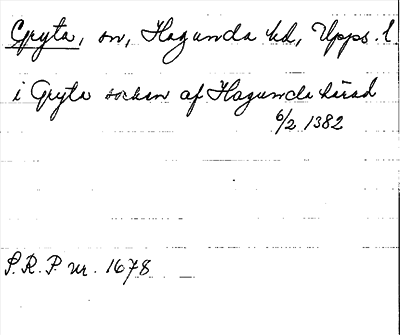 Gryta, sn, Hagunda hd, Upps. l.
i Gryta socken af Hagunda härad
6/2 1382
S.R.P. nr. 1678